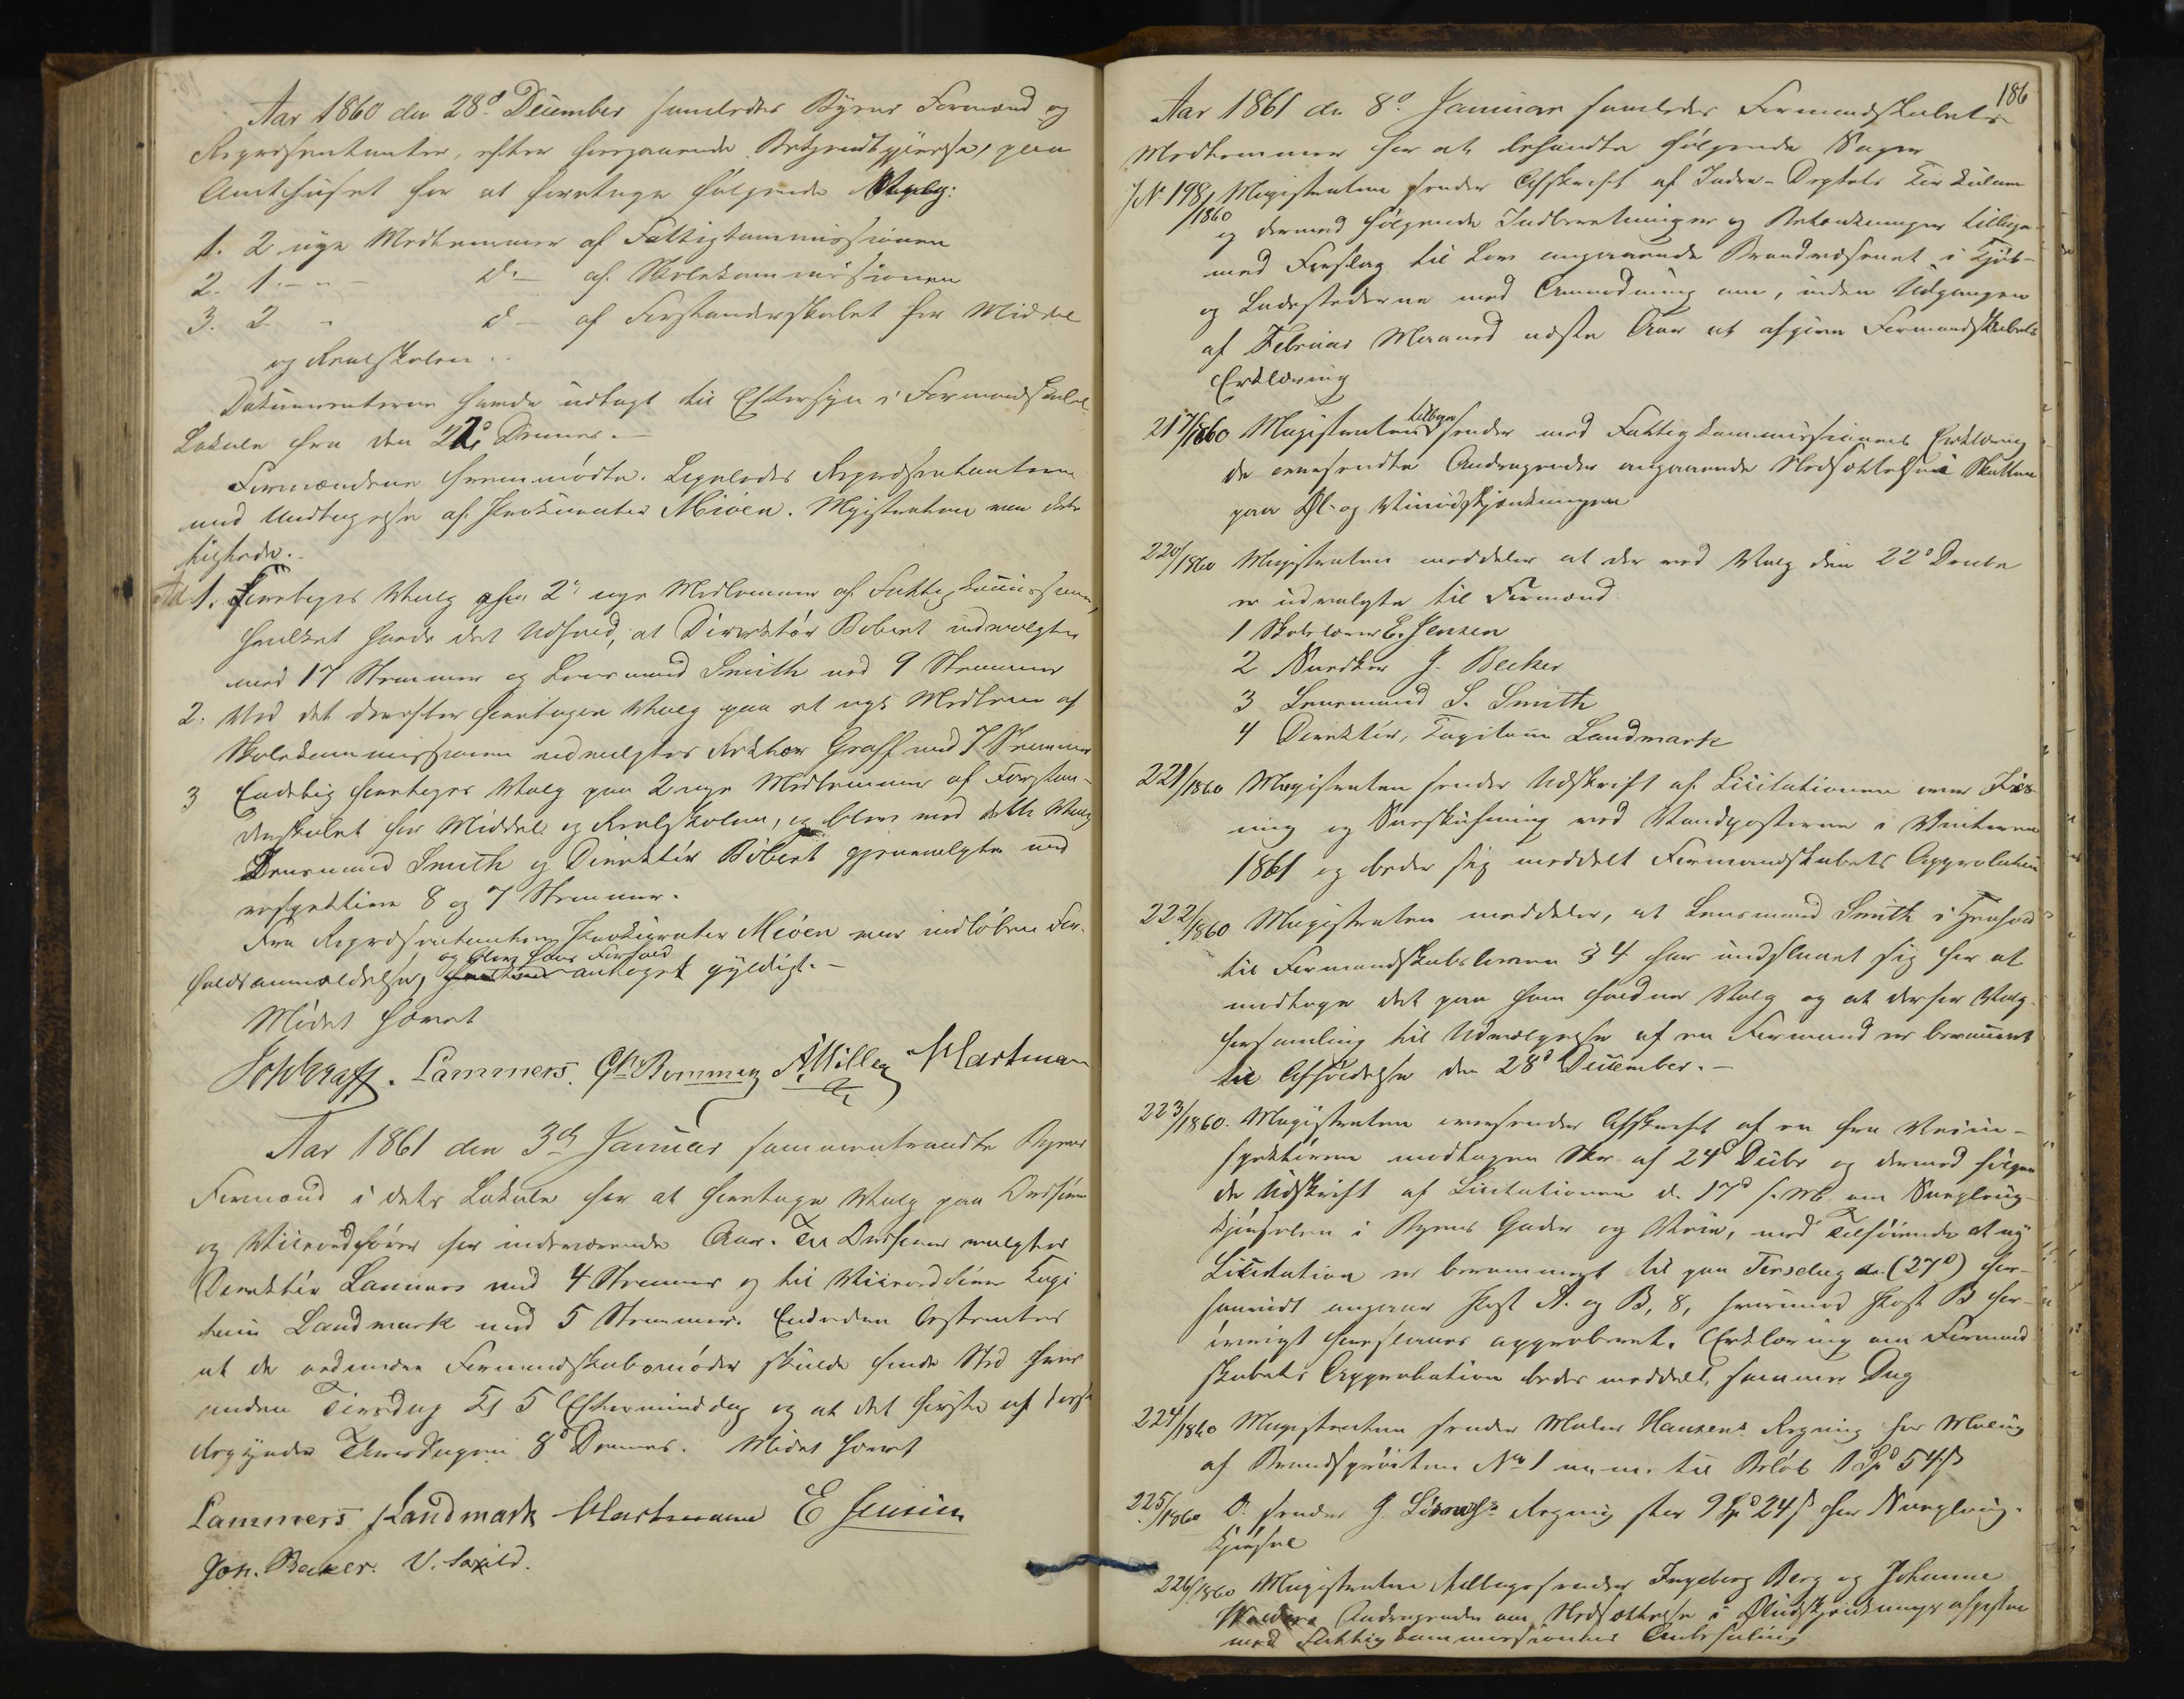 Aar 1860 den 28d December samledes Byens Formænd og
Repræsentanter, efter foregaaende Bekjendtgjørelse, paa
Amthuset for at foretage følgende Valg:
1. 2 nye Medlemmer af Fattigkommissionen
2. 1 - - - d. - af Skolekommissionen
3. 2 - d - af Forstanderskabet for Middel
og Realskolen.
Dokumenterne havde udlagt til Eftersyn i Formandskabets
Lokale fra den 22d Dennes. -
Formændene fremmødte. Ligeledes Repræsentanterne
med Undtagelse af Prokurator Miöen. Magistraten var
1. Foretoges Valg paa 2de nye Medlemmer af Fattigkommissionen,
hvilket havde det Udfald, at Direktør Bøbert udvalgtes
med 17 Stemmer og Lensmand Smith med 9 Stemmer
2. Ved det derefter foretagne Valg paa et nyt Medlem af
Skolekommissionen udvalgtes Rektor Graff med 7 Stemmer
3 Endelig foretoges Valg paa 2 nye Medlemmer af Forstan-
derskabet for Middel og Realskolen, og blev med dette Valg
Lensmand Smith og Direktør Bøbert gjenvalgte med
respektive 8 og 7 Stemmer.
Fra Repræsentanten Prokurator Miöen var indløben For-
og blev hans Forfald
faldsanmeldelse, antaget gyldigt. -
Mødet hævet
Graff. Lammers. Hartmann
Aar 1861 den 3de Januar sammentraadte Byens
Formænd i dets Lokale for at foretage Valg paa Ordfører
og Viceordfører for indeværende Aar. Til Ordfører valgtes
Direktør Lammers med 4 Stemmer og til Viceordfører Kapi
tain Landmark med 5 Stemmer. Endvidere bestemtes
at de ordinære Formandskabsmøder skulde finde Sted hver
anden Tirsdag Kl 5 Eftermiddag og at det første af disse
begynder Tirsdagen 8d Dennes. Mødet hævet
Lammers Landmark Hartmann E Jensen
Joh. Becker. V. Saxild.
186
Aar 1861 den 8d Januar samledes Formandskabets
Medlemmer for at behandle følgende Sager
J.N. 198/1860 Magistraten sender Afskrift af Indre-Deptets Cirkulære
og dermed følgende Indberetninger og Betænkninger tillige
med Forslag til Lov angaaende Brandvæsenet i Kjøb-
og Ladestederne med Anmodning om, inden Udgangen
af Februar Maaned næste Aar at afgive Formandskabets
Erklæring
217/1860 Magistraten tilbagesender med Fattigkommissionens Erklæring
de oversendte Andragender angaaende Nedsættelse i Skatten
paa Øl- og Vinudskjænkningen
220/1860 Magistraten meddeler at der ved Valg den 22d Decbr
er udvalgte til Formænd
1 Skolelærer E. Jensen
2 Snedker J. Becker
3 Lensmand S. Smith
4 Direktør, Capitain Landmark
221/1860 Magistraten sender Udskrift af Licitationen over Iis
ning og Sneskufning ved Vandposterne i Vinteren
1861 og beder sig meddelt Formandskabets Approbation
222/1860 Magistraten meddeler, at Lensmand Smith i Henhold
til Formandskabsloven § 4 har undslaaet sig for at
modtage det paa ham faldne Valg og at derfor Valg-
forsamling til Udvælgelse af en Formand er berammet
til Afholdelse den 28d December. -
223/1860. Magistraten oversender Afskrift af en fra Veiin-
spektøren modtagen Skr. af 24d Decbr og dermed følgen
de Udskrift af Licitationen d. 17d s. M. om Sneploug-
kjørselen i Byens Gader og Veie, med Tilføiende at ny
Licitation er berammet til paa Torsdag (27d) for-
saavidt angaaer Post A. og B, 8, hvorimod Post B for-
øvrigt foreslaaes approberet. Erklæring om Formand
skabets Approbation bedes meddelt samme Dag
224/1860 Magistraten sender Maler Hansens Regning for Maling
af Brandsprøiten No 1 m. m. til Beløb 1 Spd 54 ß
225/1860 D. sender J. Regning stor 9 Spd 24 ß for Sneploug-
kjørsel
226/1860 Magistraten tilbagesender Ingeborg Berg og Johanne
Andragender om Nedsættelse i Øludskjænkningsafgiften
med Fattigkommissionens Anbefaling